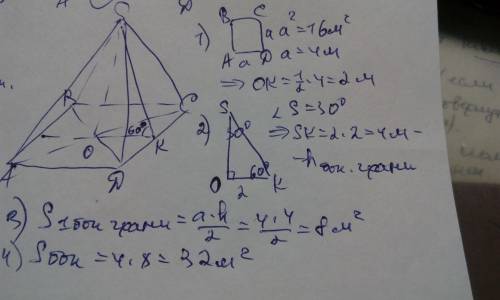 S
B
C
A
O
D
K
60°
1) B C
a a² = 16 м²
A a D a = 4 м
=> OK = 1/2 · 4 = 2 м
2) S
∠S = 30°
30°
=> SK = 2 · 2 = 4 м –
60°
O 2 K
– h бок. грани
3) S 1 бок грани = a·h/2 = 4·4/2 = 8 м²
4) S бок = 4 · 8 = 32 м²